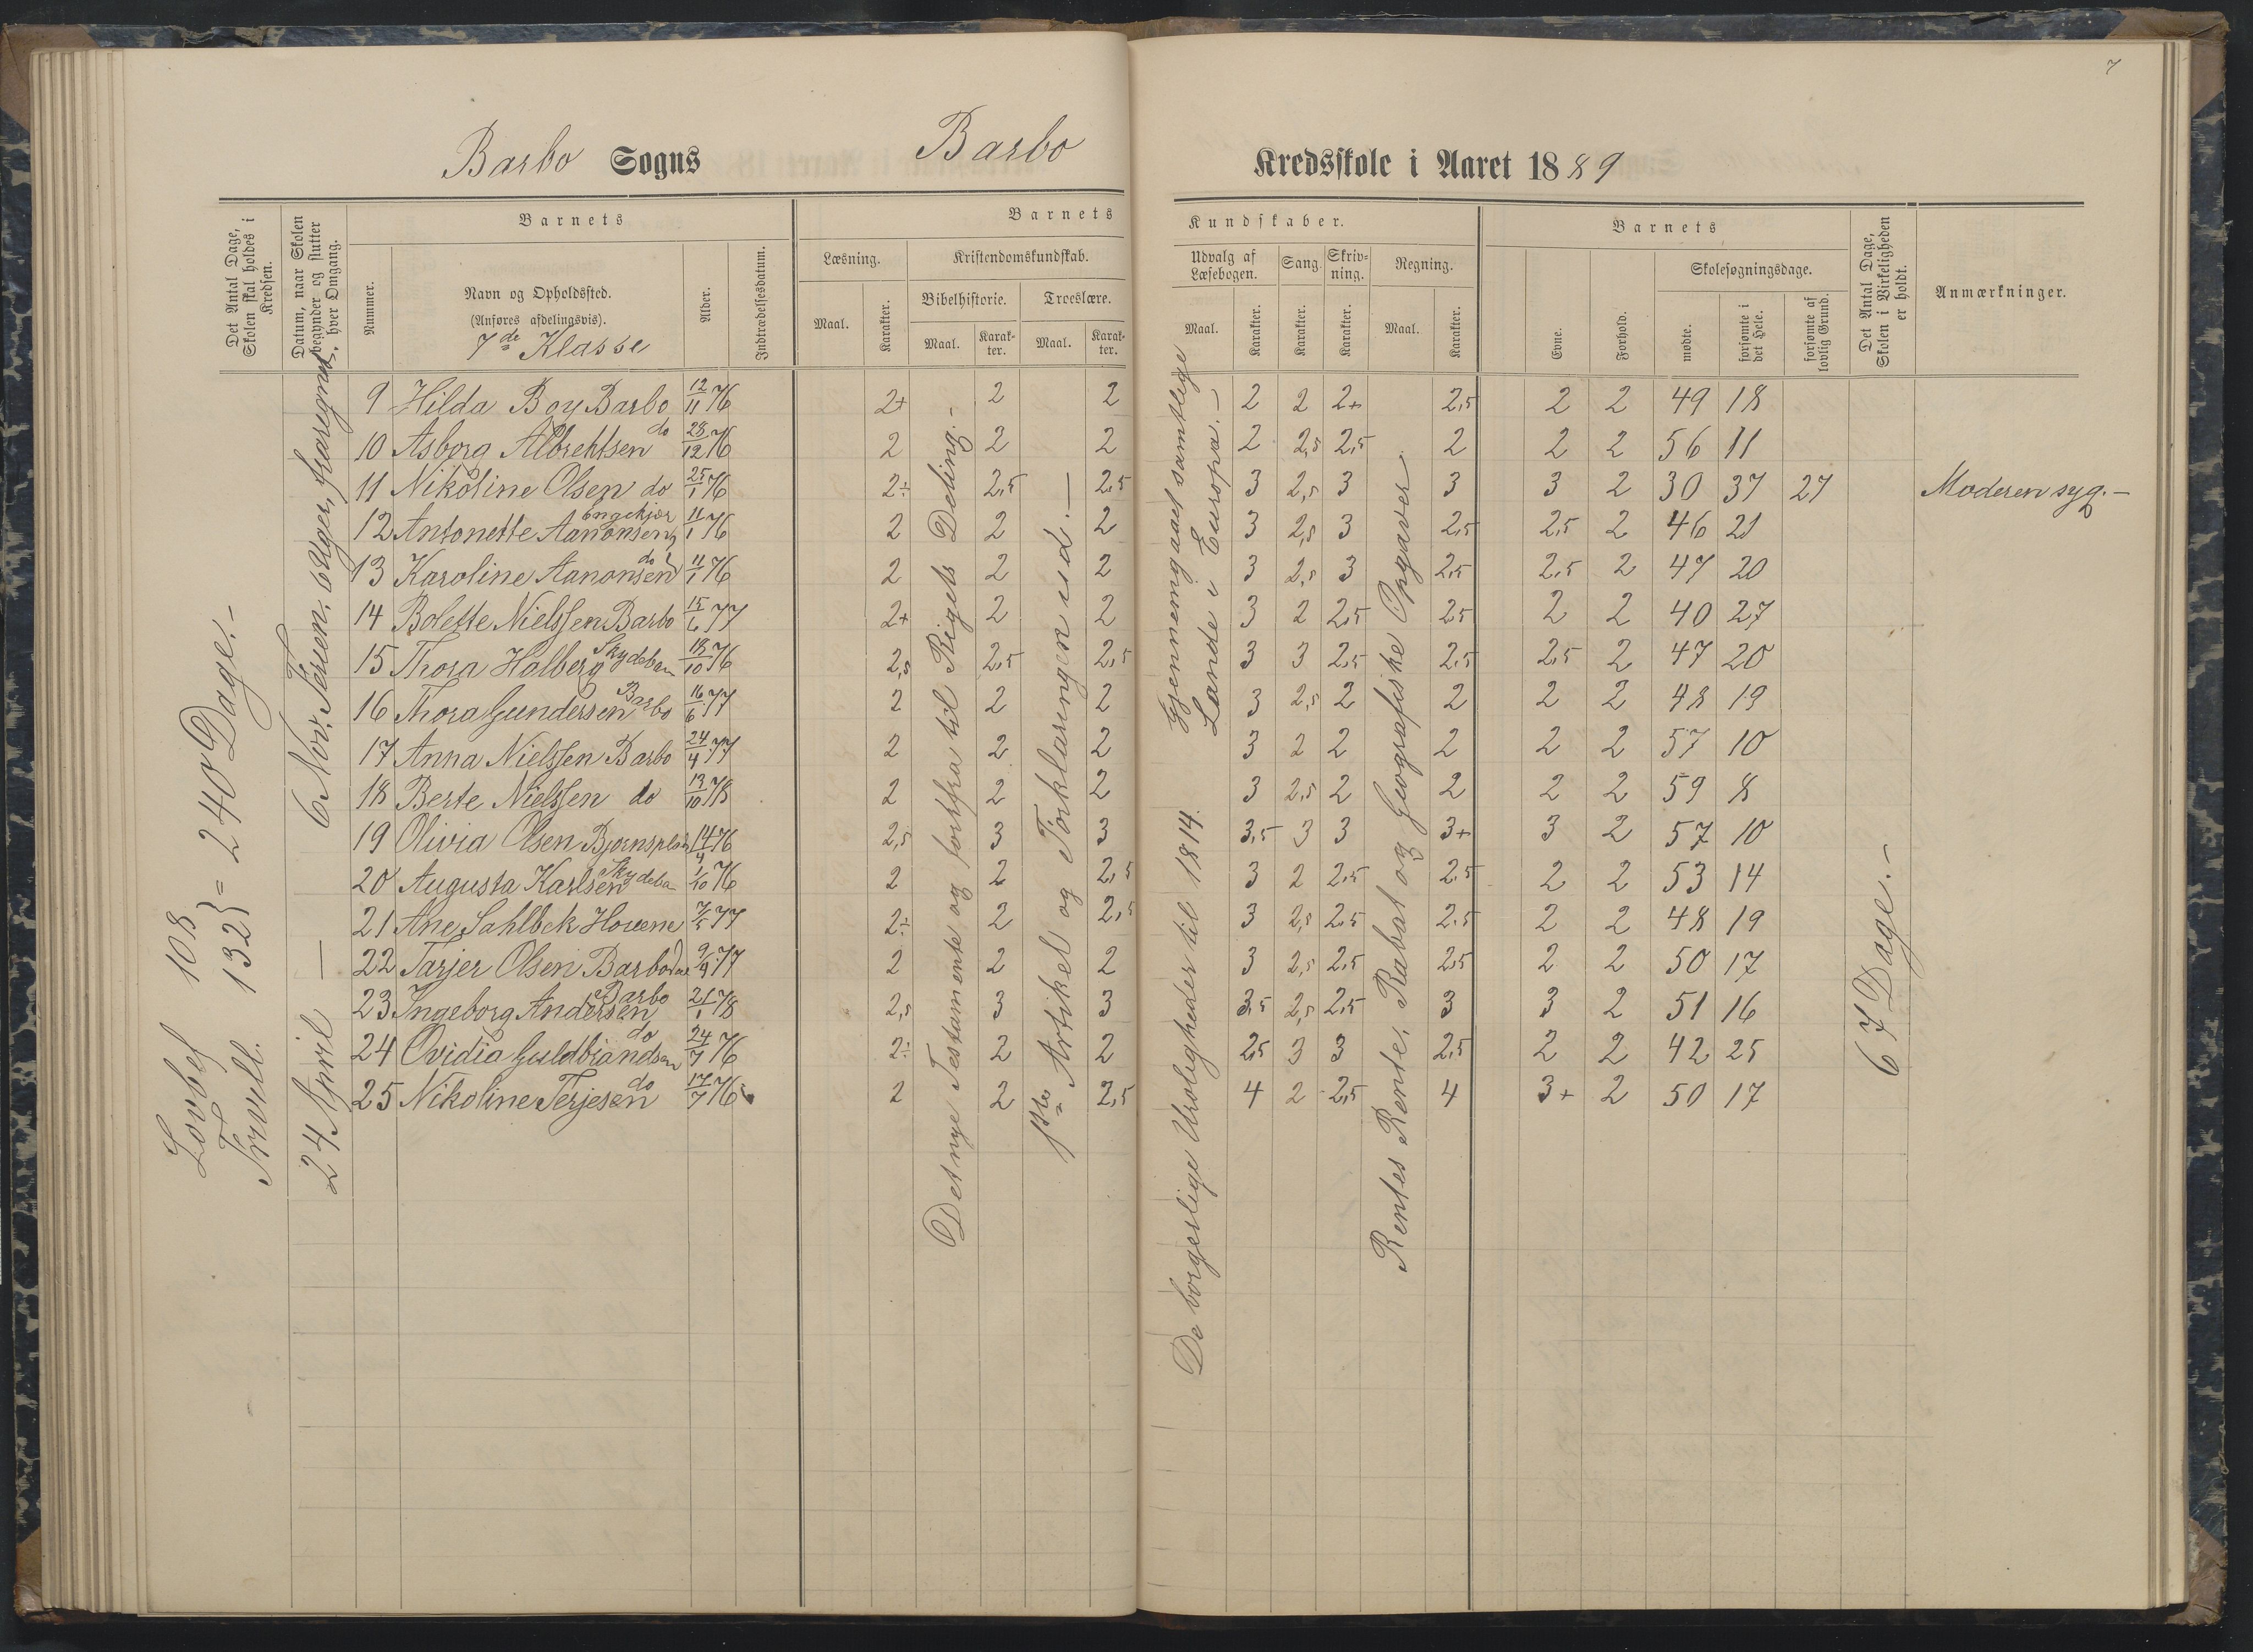 7
Barbo Sogns Barbo Kredsskole i Aaret 1889
Det Antal Dage, Skolen skal holdes i Kredsen.
Datum, naar Skolen begynder og slutter hver Omgang.
Barnets
Nummer.
Navn og Opholdssted.
(Anføres afdelingsvis).
7de Klasse
Alder.
Indtrædelsesdatum.
Barnets Kundskaber.
Læsning.
Maal.
Karakter.
Kristendomskundskab.
Bibelhistorie.
Maal.
Karakter.
Troeslære.
Maal.
Karakter.
Udvalg af Læsebogen.
Maal.
Karakter.
Sang.
Karakter.
Skrivning.
Karakter.
Regning.
Maal.
Karakter.
Barnets
Evne.
Forhold.
Skolesøgningsdage.
mødte.
forsømte i det Hele.
forsømte af lovlig Grund.
Det Antal Dage, Skolen i Virkeligheden er holdt.
Anmærkninger.
9 Hilda Boy Barbo 12/11 76 2+ 2 2 2 2 2+ 2,5 2 2 49 18
10 Asborg Albrehtsen do 28/12 76 2 2 2 2 2,5 2,5 2 2 2 56 11
11 Nikoline Olsen do 25/1 76 2÷ 2,5 2,5 3 2,5 3 3 3 2 30 37 27 Moderen syg.-
12 Antonette Aanonsen 11/1 76 2 2 2 3 2,5 3 2,5 2,5 2 46 21
13 Karoline Aanonsen do 11/1 76 2 2 2 3 2,5 3 2,5 2,5 2 47 20
14 Bolette Nielssen Barbo 15/6 77 2+ 2 2 3 2 2,5 2,5 2 2 40 27
15 Thora Holberg Skydeban 18/10 76 2,5 2,5 2,5 3 3 2,5 2,5 2,5 2 47 20
16 Thora Gundersen Barbo 16/6 77 2 2 2 3 2,5 2 2 2 2 48 19
17 Anna Nielssen Barbo 24/4 77 2 2 2 3 2 2 2 2 2 57 10
18 Berte Nielssen do 13/10 78 2 2 2 3 2,5 2 2 2 2 59 8
19 Olivia Olsen Bjørnsplads 14/4 76 2,5 3 3 3,5 3 3 3+ 3 2 57 10
20 Augusta Karlsen Skydeba 1/10 76 2 2 2,5 3 2 2,5 2,5 2 2 53 14
21 Ane Sahlbck Hovene 7/5 77 2÷ 2 2,5 3 2,5 2,5 2,5 2 2 48 19
22 Tarjer Olsen 9/9 77 2 2 2 3 2,5 2,5 2,5 2 2 50 17
23 Ingeborg Andersen Barbo 21/1 78 2,5 3 3 3,5 2,5 2,5 3 3 2 51 16
24 Ovidia Guldbrandsen do 24/7 76 2÷ 2 2 2,5 3 3 2,5 2 2 42 25
25 Nikoline Terjesen do 17/7 76 2 2 2,5 4 2 2,5 4 3+ 2 50 17
Lovbef 108
Frivill. 132 } = 240 Dage.-
24 April — 6 Nov. Ferien, 6 Uger, fraregnet.
Det nye Testamente og fortfra til Rigets Deling.-
1ste Artikel og Forklaringen ud.-
De borgerlige Uroligheder til 1814.
Gjennemgaaet samtlige Lande i Europa.-
Rentes Rente, Rabat og Geografiske Opgaver.
67 Dage.-